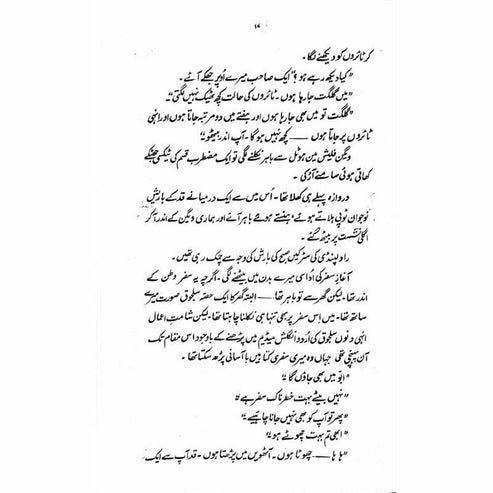 ۱۷
کر ٹائروں کو دیکھنے لگا۔
"کیا دیکھ رہے ہو؟" ایک صاحب میرے اُوپر جھکے آئے۔
"میں گلگت جا رہا ہوں۔ ٹائروں کی حالت کچھ ٹھیک نہیں لگتی۔"
"گلگت تو میں بھی جا رہا ہوں اور ہفتے میں دو مرتبہ جاتا ہوں اور انہی
ٹائروں پر جاتا ہوں ــــ کچھ نہیں ہوگا۔ آپ اندر بیٹھو۔"
وگین فلیش مین ہوٹل سے باہر نکلنے لگی تو ایک مضطرب قسم کی ٹیکسی جھٹکے
کھاتی ہوئی سامنے آ رُکی۔
دروازہ پہلے ہی کھلا تھا۔ اُس میں سے ایک درمیانے قد کے باریش
نوجوان ٹوپی ہلاتے ہوئے ہنستے ہوئے باہر آئے اور ہماری وگین کے اندر آ کر
اگلی نشست پر بیٹھ گئے۔
راولپنڈی کی سڑکیں صبح کی بارش کی وجہ سے چمک رہی تھیں۔
آغازِ سفر کی اُداسی میرے بدن میں بیٹھنے لگی۔ اگرچہ یہ سفر وطن کے
اندر تھا۔ لیکن گھر سے تو باہر تھا ــــ البتہ گھر کا ایک حصہ سلجوق صورت میرے
ساتھ تھا۔ میں اس سفر پر بھی تنہا ہی نکلنا چاہتا تھا۔ لیکن شامتِ اعمال
انہی دنوں سلجوق کی اُردو انگلش میڈیم میں پڑھنے کے باوجود اس مقام تک
آن پہنچی تھی جہاں وہ میری سفری کتابیں بآسانی پڑھ سکتا تھا۔
"ابو میں بھی جاؤں گا۔"
"نہیں بیٹے بہت خطرناک سفر ہے۔"
"پھر تو آپ کو بھی نہیں جانا چاہیے۔"
"ابھی تم بہت چھوٹے ہو۔"
"ہا ہا ــــ چھوٹا ہوں۔ آٹھویں میں پڑھتا ہوں۔ قد آپ سے ایک